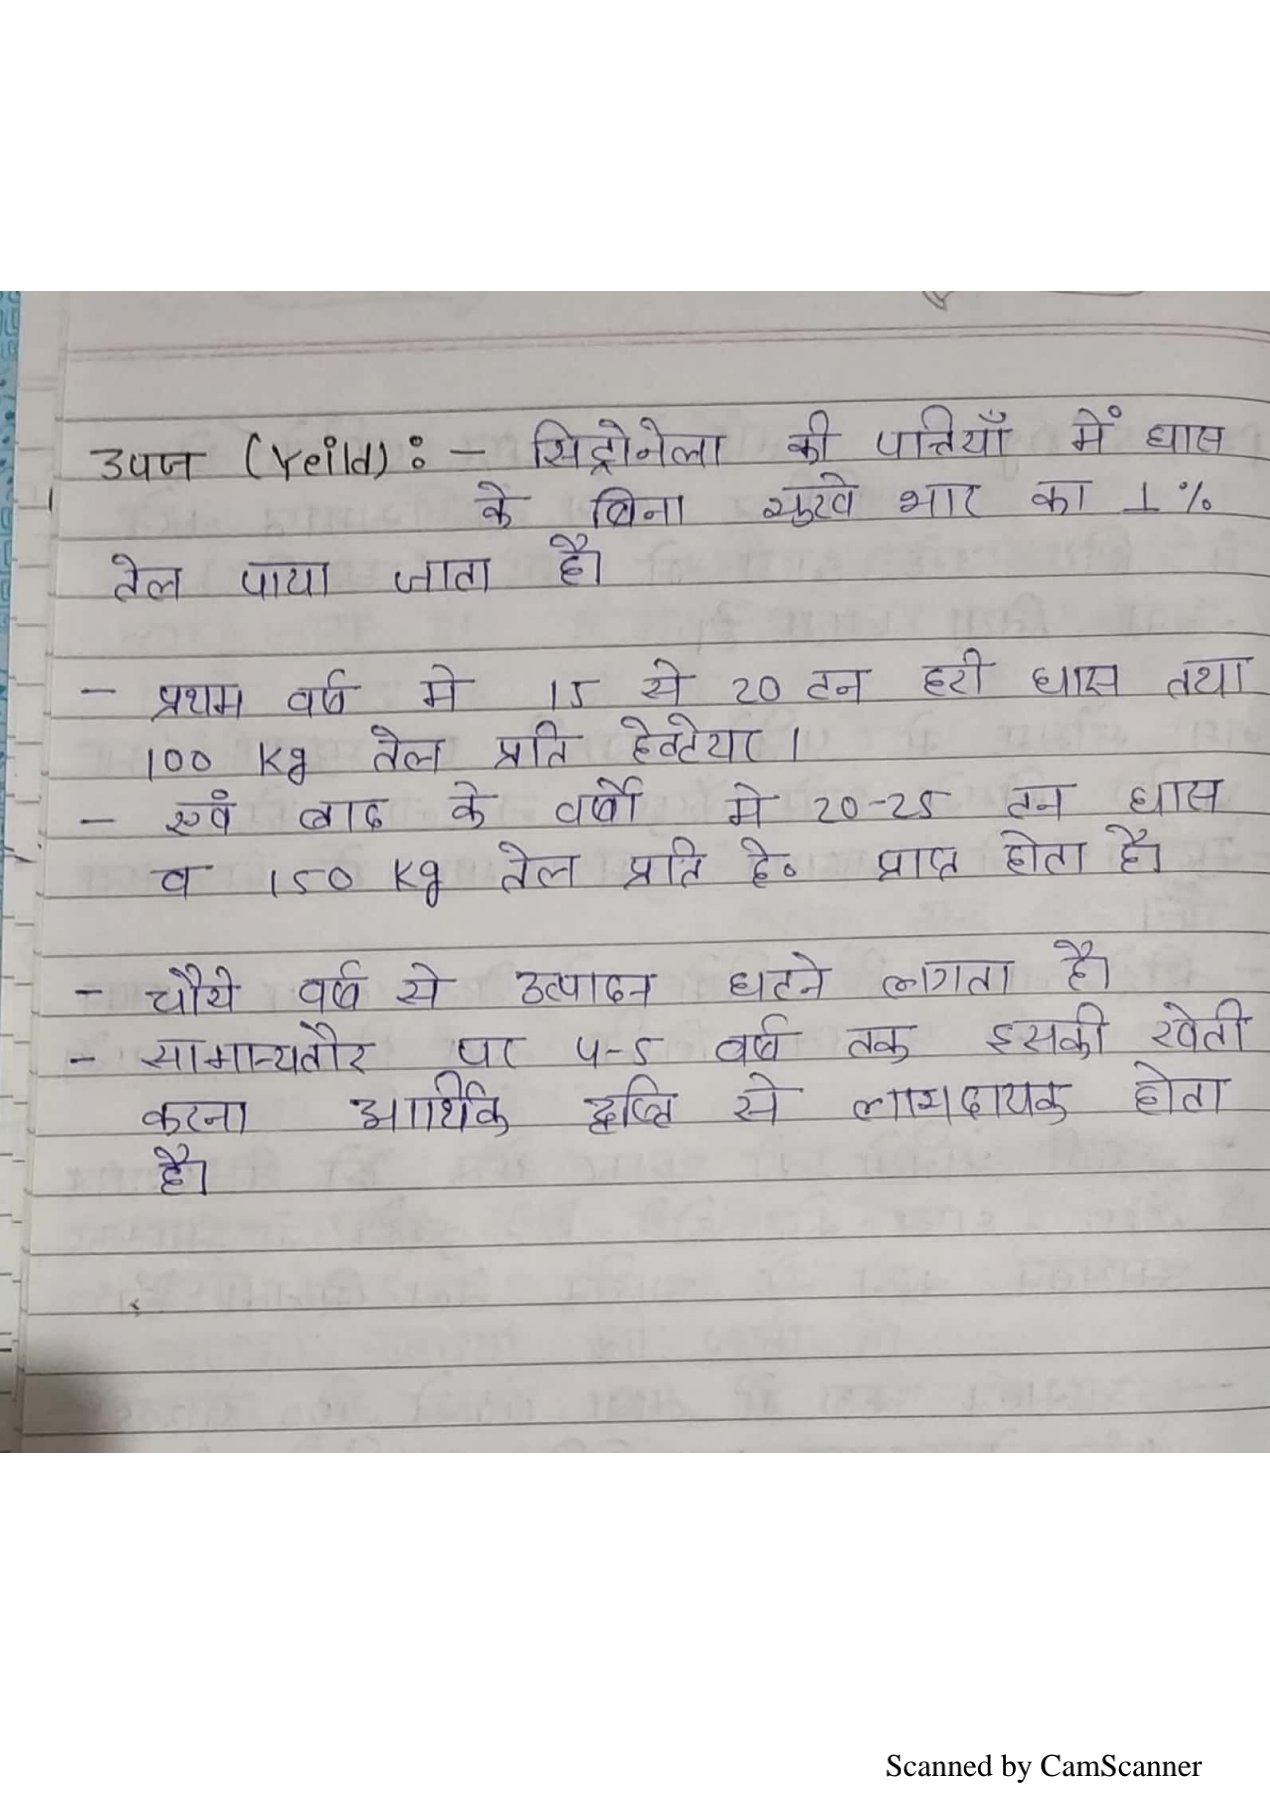 उपज (Yeild) : - सिट्रोनेला की पत्तियाँ में घास
के बिना सुखे भार का 1%
तेल पाया जाता है।
- प्रथम वर्ष मे 15 से 20 टन हरी घास तथा
100 Kg तेल प्रति हेक्टेयर।
- एवं बाद के वर्षो मे 20-25 टन घास
व 150 Kg तेल प्रति हे० प्राप्त होता है।
- चौथे वर्ष से उत्पादन घटने लगता है।
- सामान्यतौर पर 4-5 वर्ष तक इसकी खेती
करना आर्थिक दृष्टि से लाभदायक होता
है।
Scanned by CamScanner